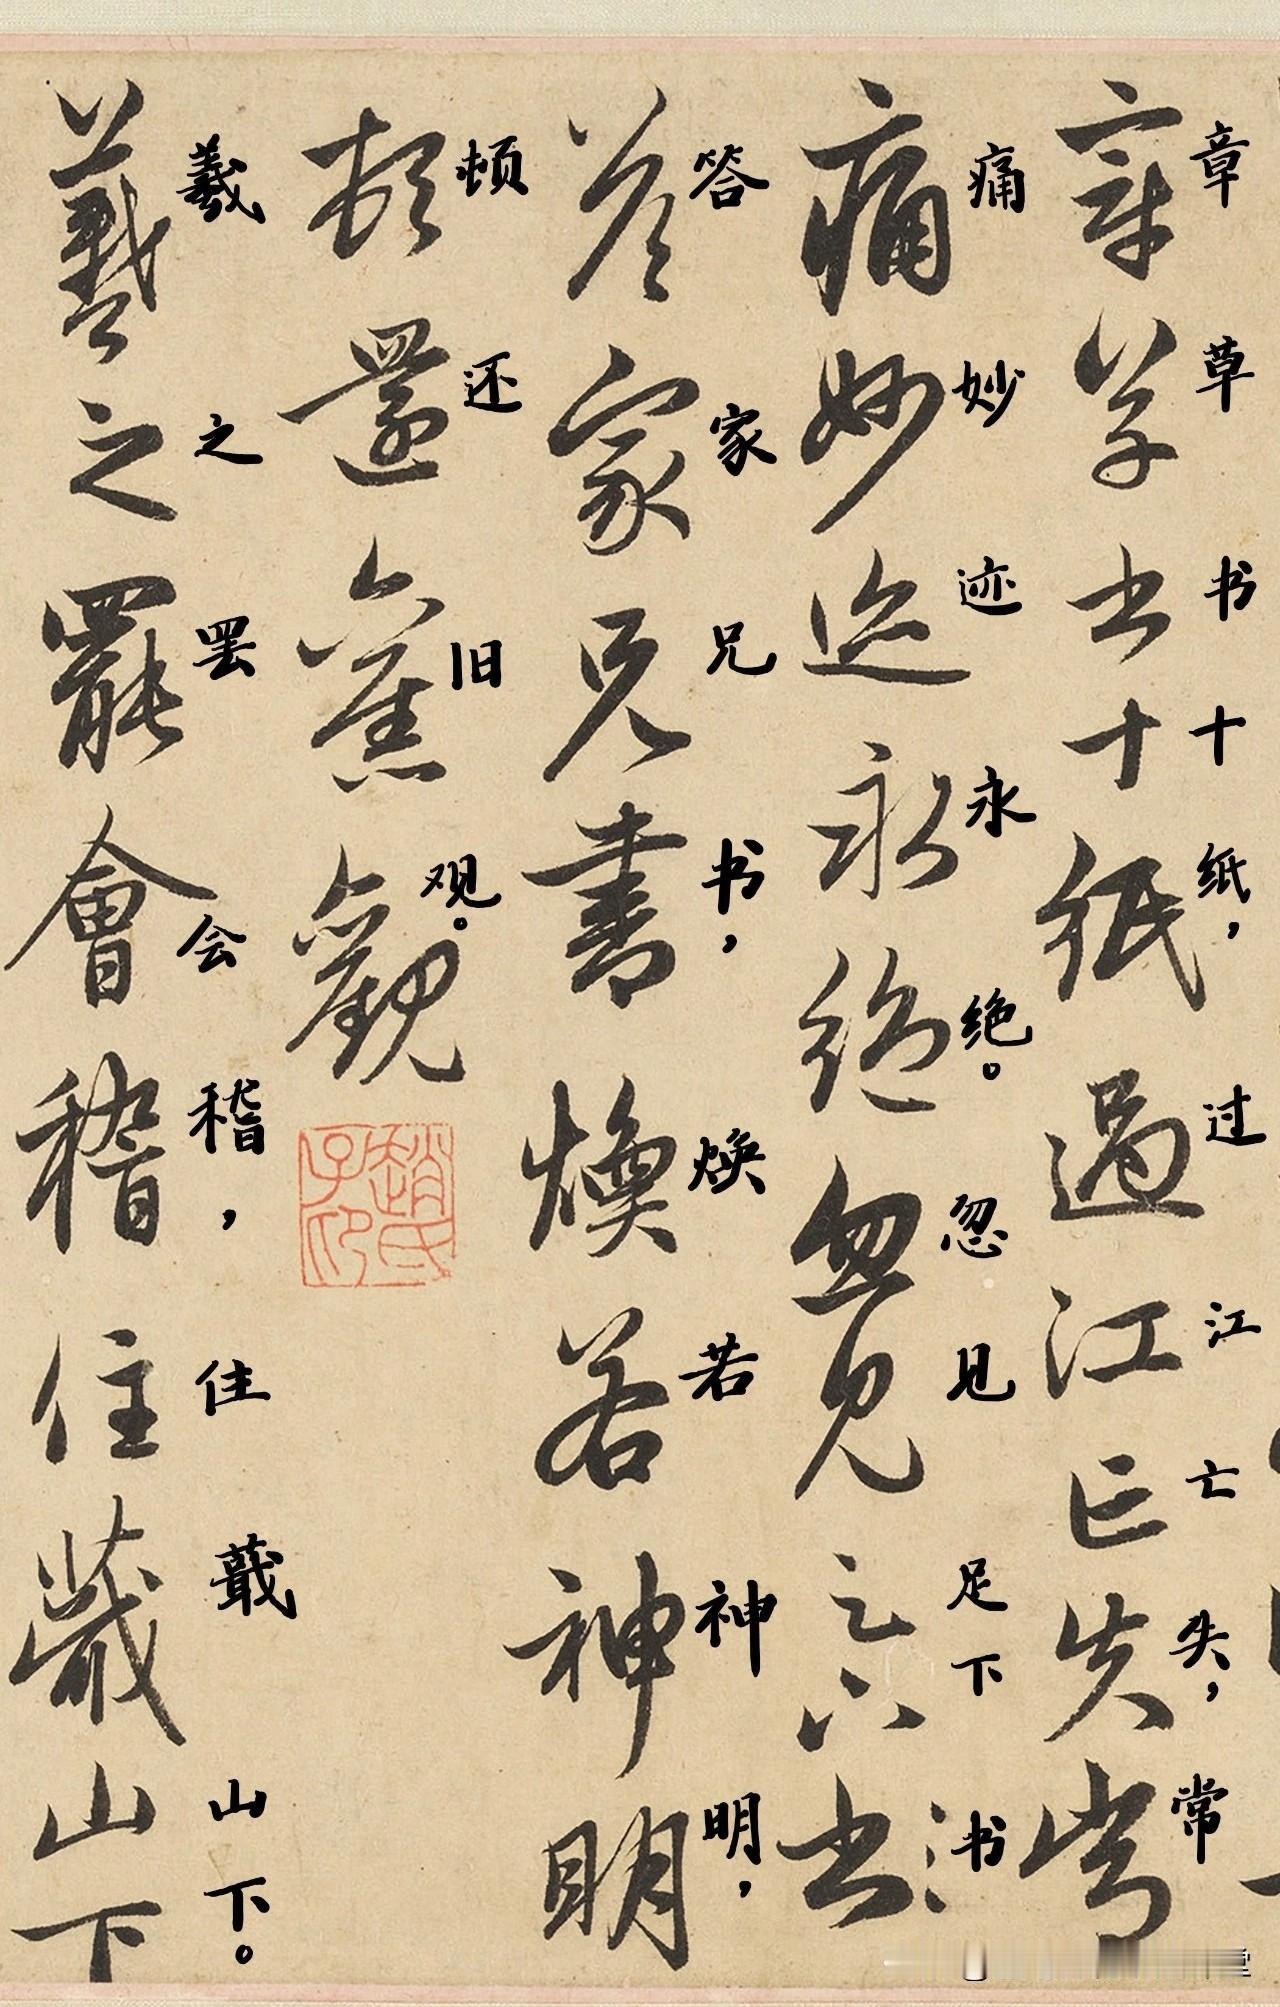 章草书十纸，过江亡失，常
痛妙迹永绝。忽见足下书
答家兄书，焕若神明，
顿还旧观。
羲之罢会稽，住蕺山下。
章草書十紙過江亡失常
痛妙迹永絕忽見足下書
答家兄書煥若神明
頓還舊觀
趙氏子印
羲之罷會稽住蕺山下